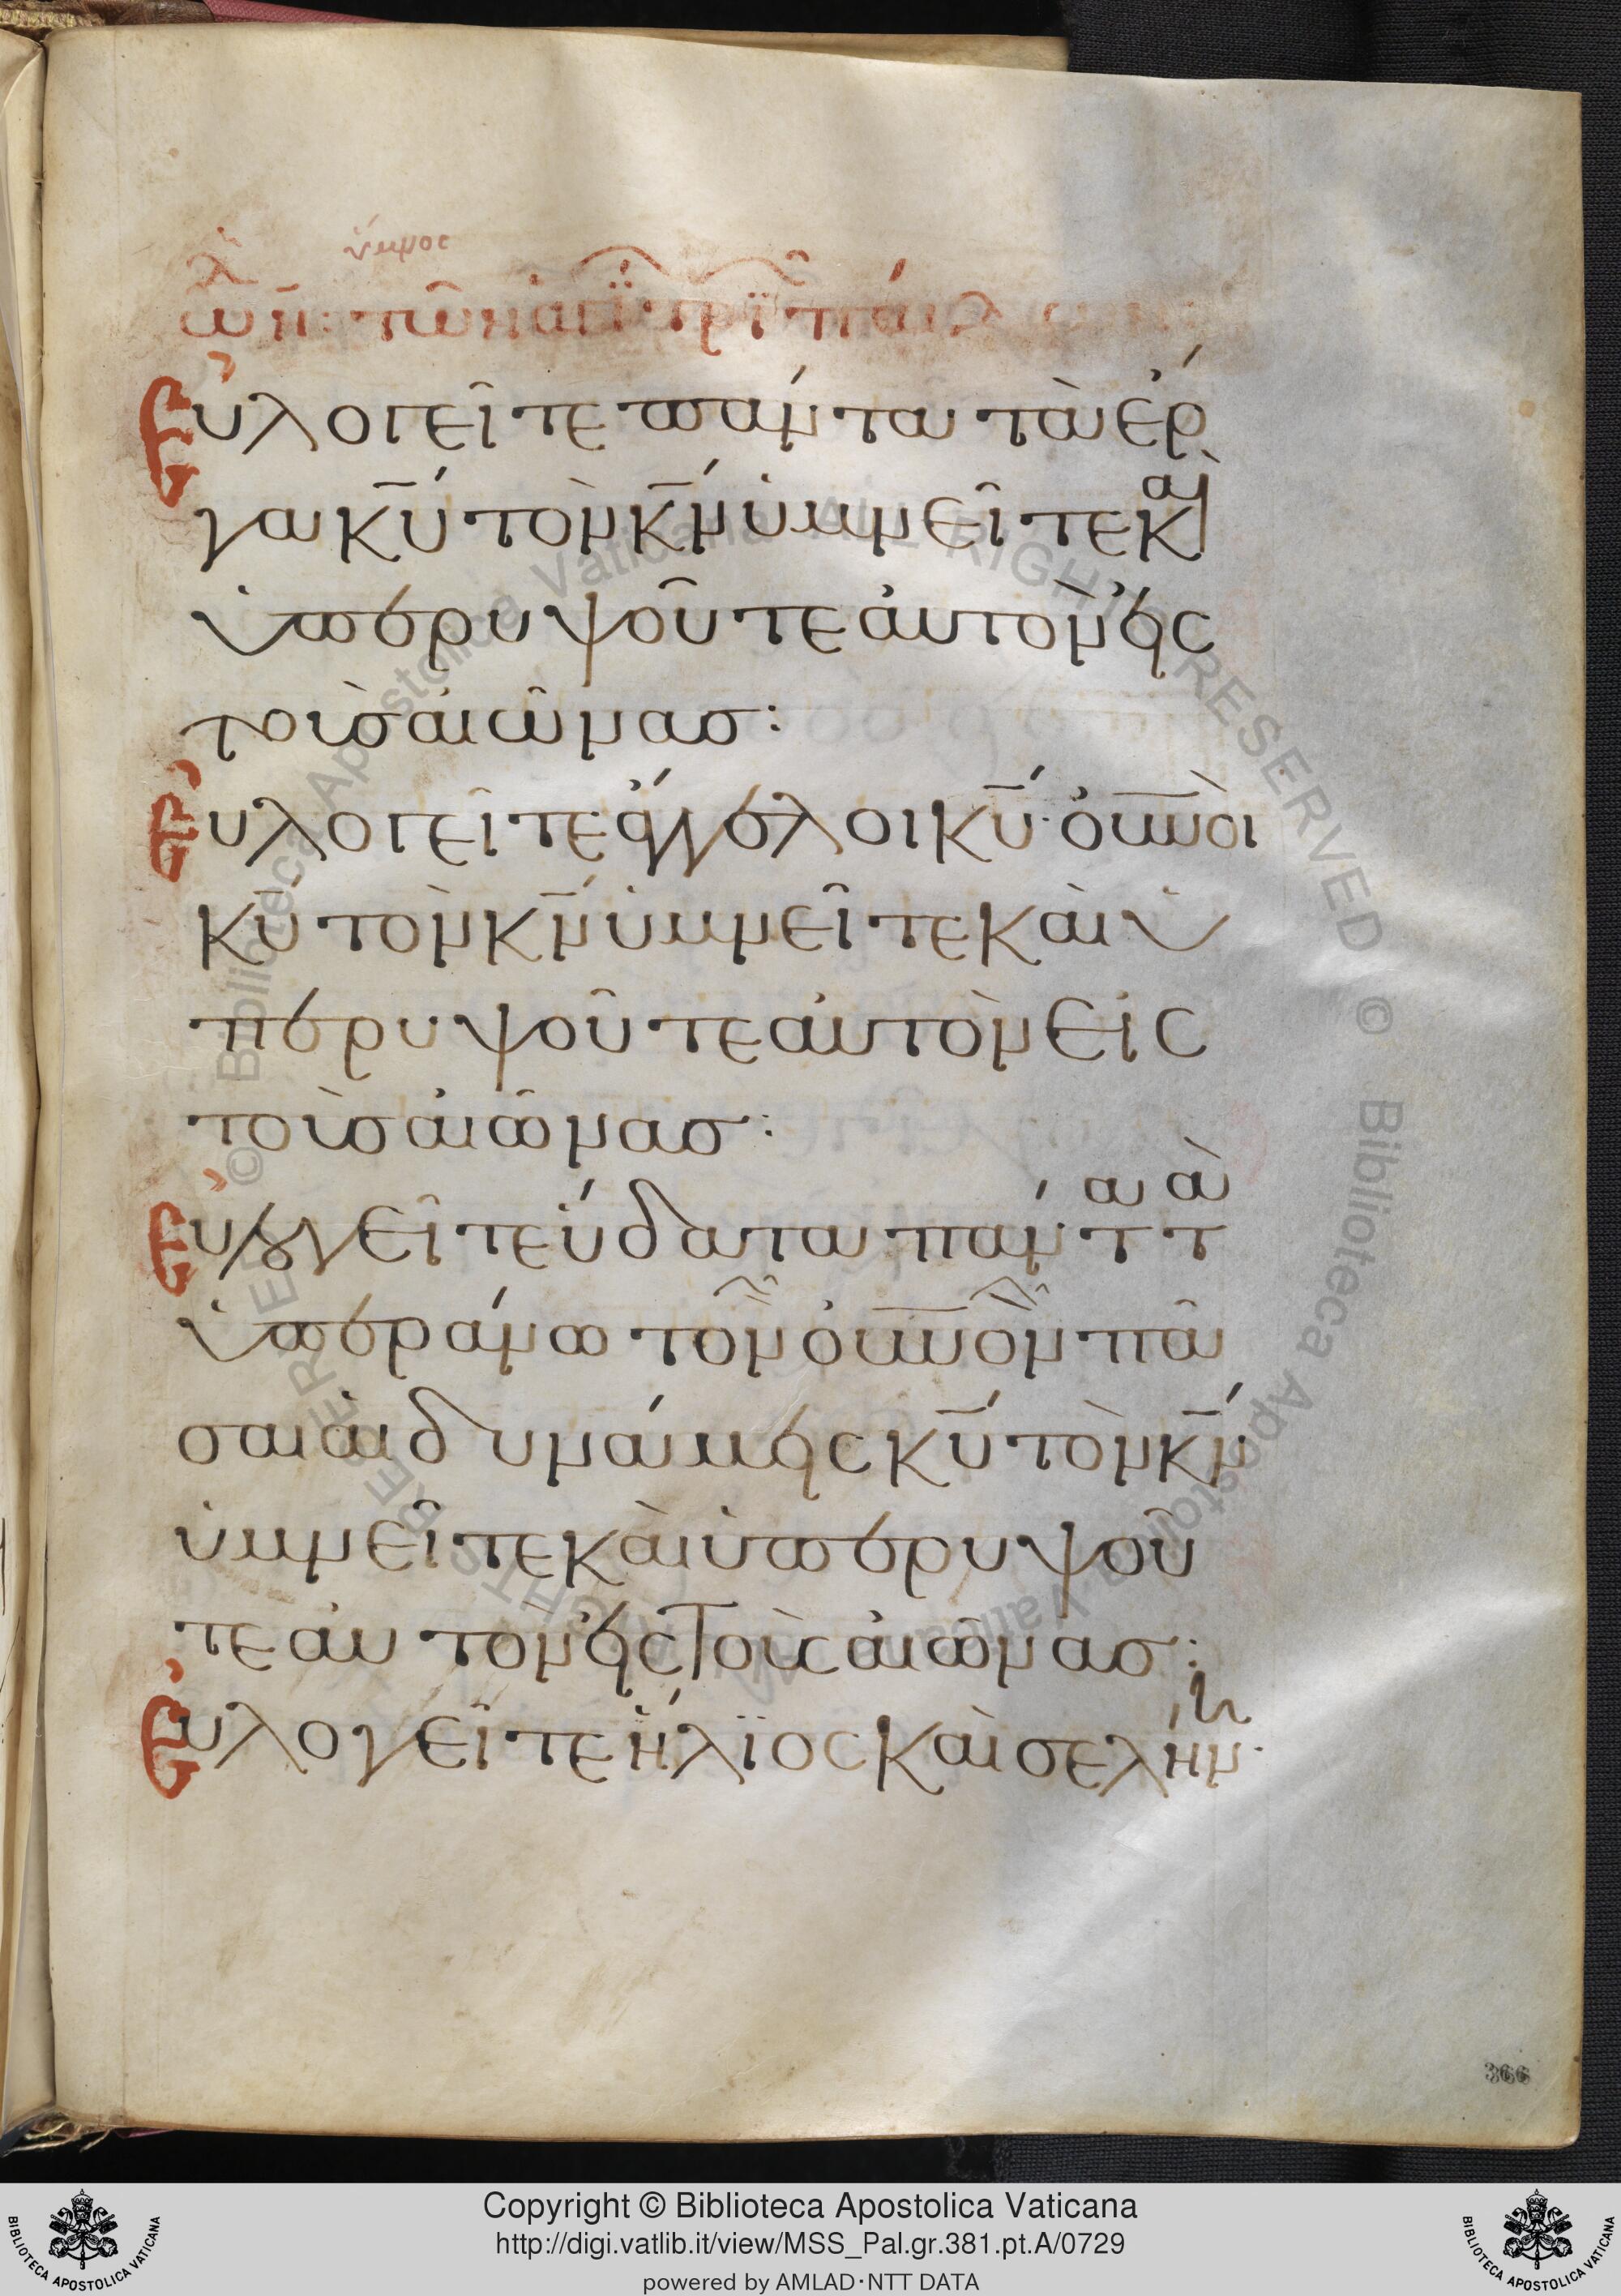 ὕμνος
ᾠδὴ τῶν ἁγί τρι παίδ
Εὐλογεῖτε πάντα τὰ ἔρ
γα κ̅υ̅ τὸν κ̅ν̅ ὑμνεῖτε καὶ
ὑπερυψοῦτε αὐτὸν εἰς
τοὺς αἰῶνας:
Εὐλογεῖτε ἄγγελοι κ̅υ̅· ο̅υ̅ν̅ο̅ι̅
κ̅υ̅ τὸν κ̅ν̅ ὑμνεῖτε καὶ ὑ
περυψοῦτε αὐτὸν εἰς
τοὺς αἰῶνας:
Εὐλογεῖτε ὕδατα πάντα τὰ
ὑπεράνω τῶν ο̅υ̅ν̅ῶν πᾶ
σαι αἱ δυνάμεις κ̅υ̅ τὸν κ̅ν̅
ὑμνεῖτε καὶ ὑπερυψοῦ
τε αὐτὸν εἰς τοὺς αἰῶνας:
Εὐλογεῖτε ἥλϊος καὶ σελήνη·
366
© Biblioteca Apostolica Vaticana ALL RIGHTS RESERVED © Biblioteca Apostolica Vaticana ALL RIGHTS RESERVED
Copyright © Biblioteca Apostolica Vaticana
http://digi.vatlib.it/view/MSS_Pal.gr.381.pt.A/0729
powered by AMLAD·NTT DATA
BIBLIOTECA APOSTOLICA VATICANA
BIBLIOTECA APOSTOLICA VATICANA